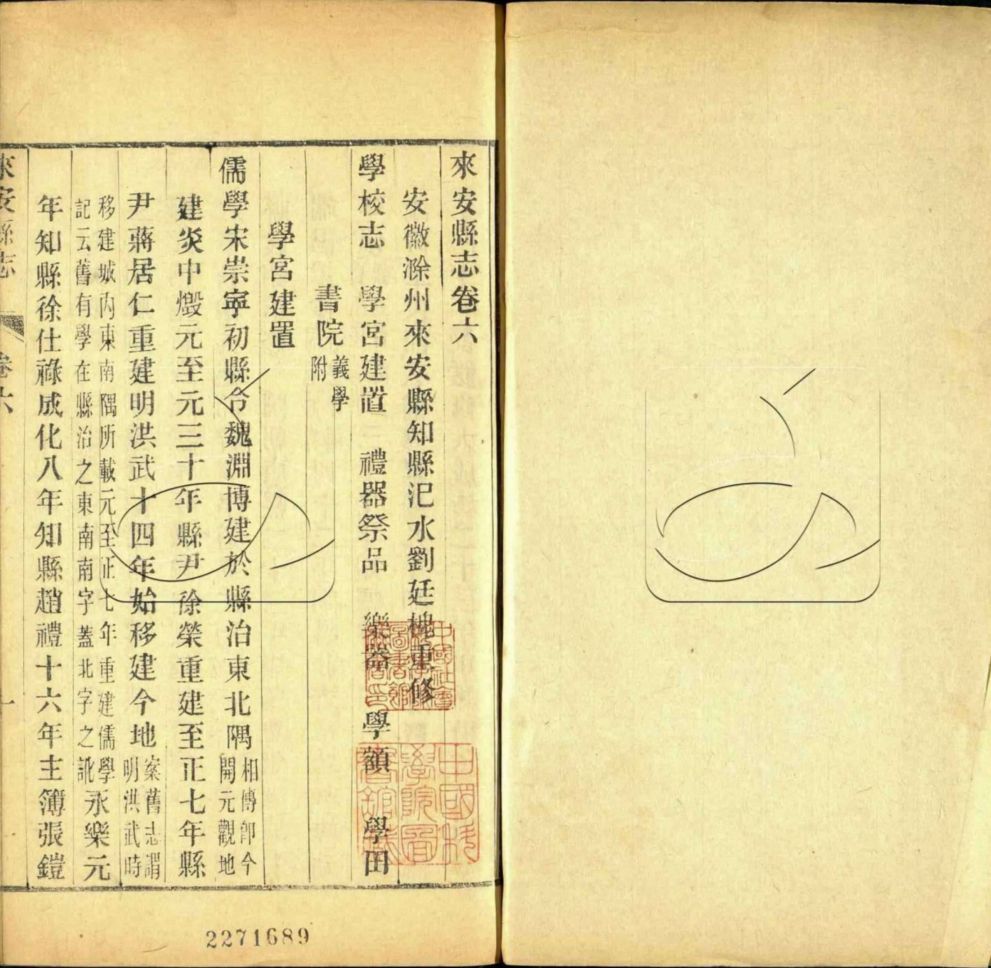 來安縣志卷六
安徽滁州來安縣知縣汜水劉廷槐重修
學校志 學宮建置 禮器祭品 樂器 學額 學田
書院義學附
學宮建置
儒學宋崇寧初縣令魏淵博建於縣治東北隅相傳卽今開元觀地
建炎中燬元至元三十年縣尹徐榮重建至正七年縣
尹蔣居仁重建明洪武十四年始移建今地案舊志謂明洪武時
移建城内東南隅所載元至正七年重建儒學記云舊有學在縣治之東南南字蓋北字之訛永樂元
年知縣徐仕祿成化八年知縣趙禮十六年主簿張鎧
來安縣志 卷六 一
2271689